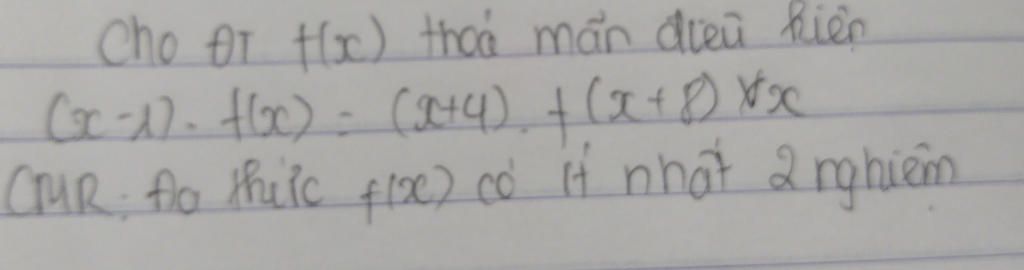 Cho ĐT f(x) thoả mãn điều kiện
(x-1). f(x) = (x+4). f(x+8) ∀x
CMR: Đa thức f(x) có ít nhất 2 nghiệm